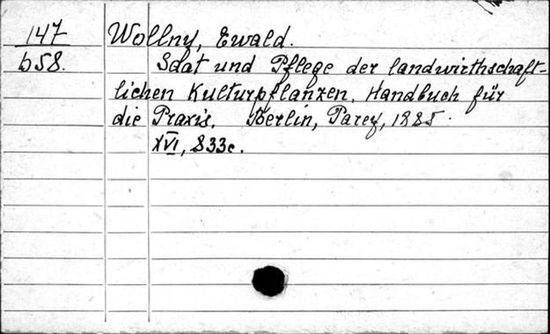 147
b58.
Wollny, Ewald.
Saat und Pflege der landwirthschaft-
lichen Kulturpflanzen. Handbuch für
die Praxis. Berlin, Parey, 1885.
XVI, 833c.